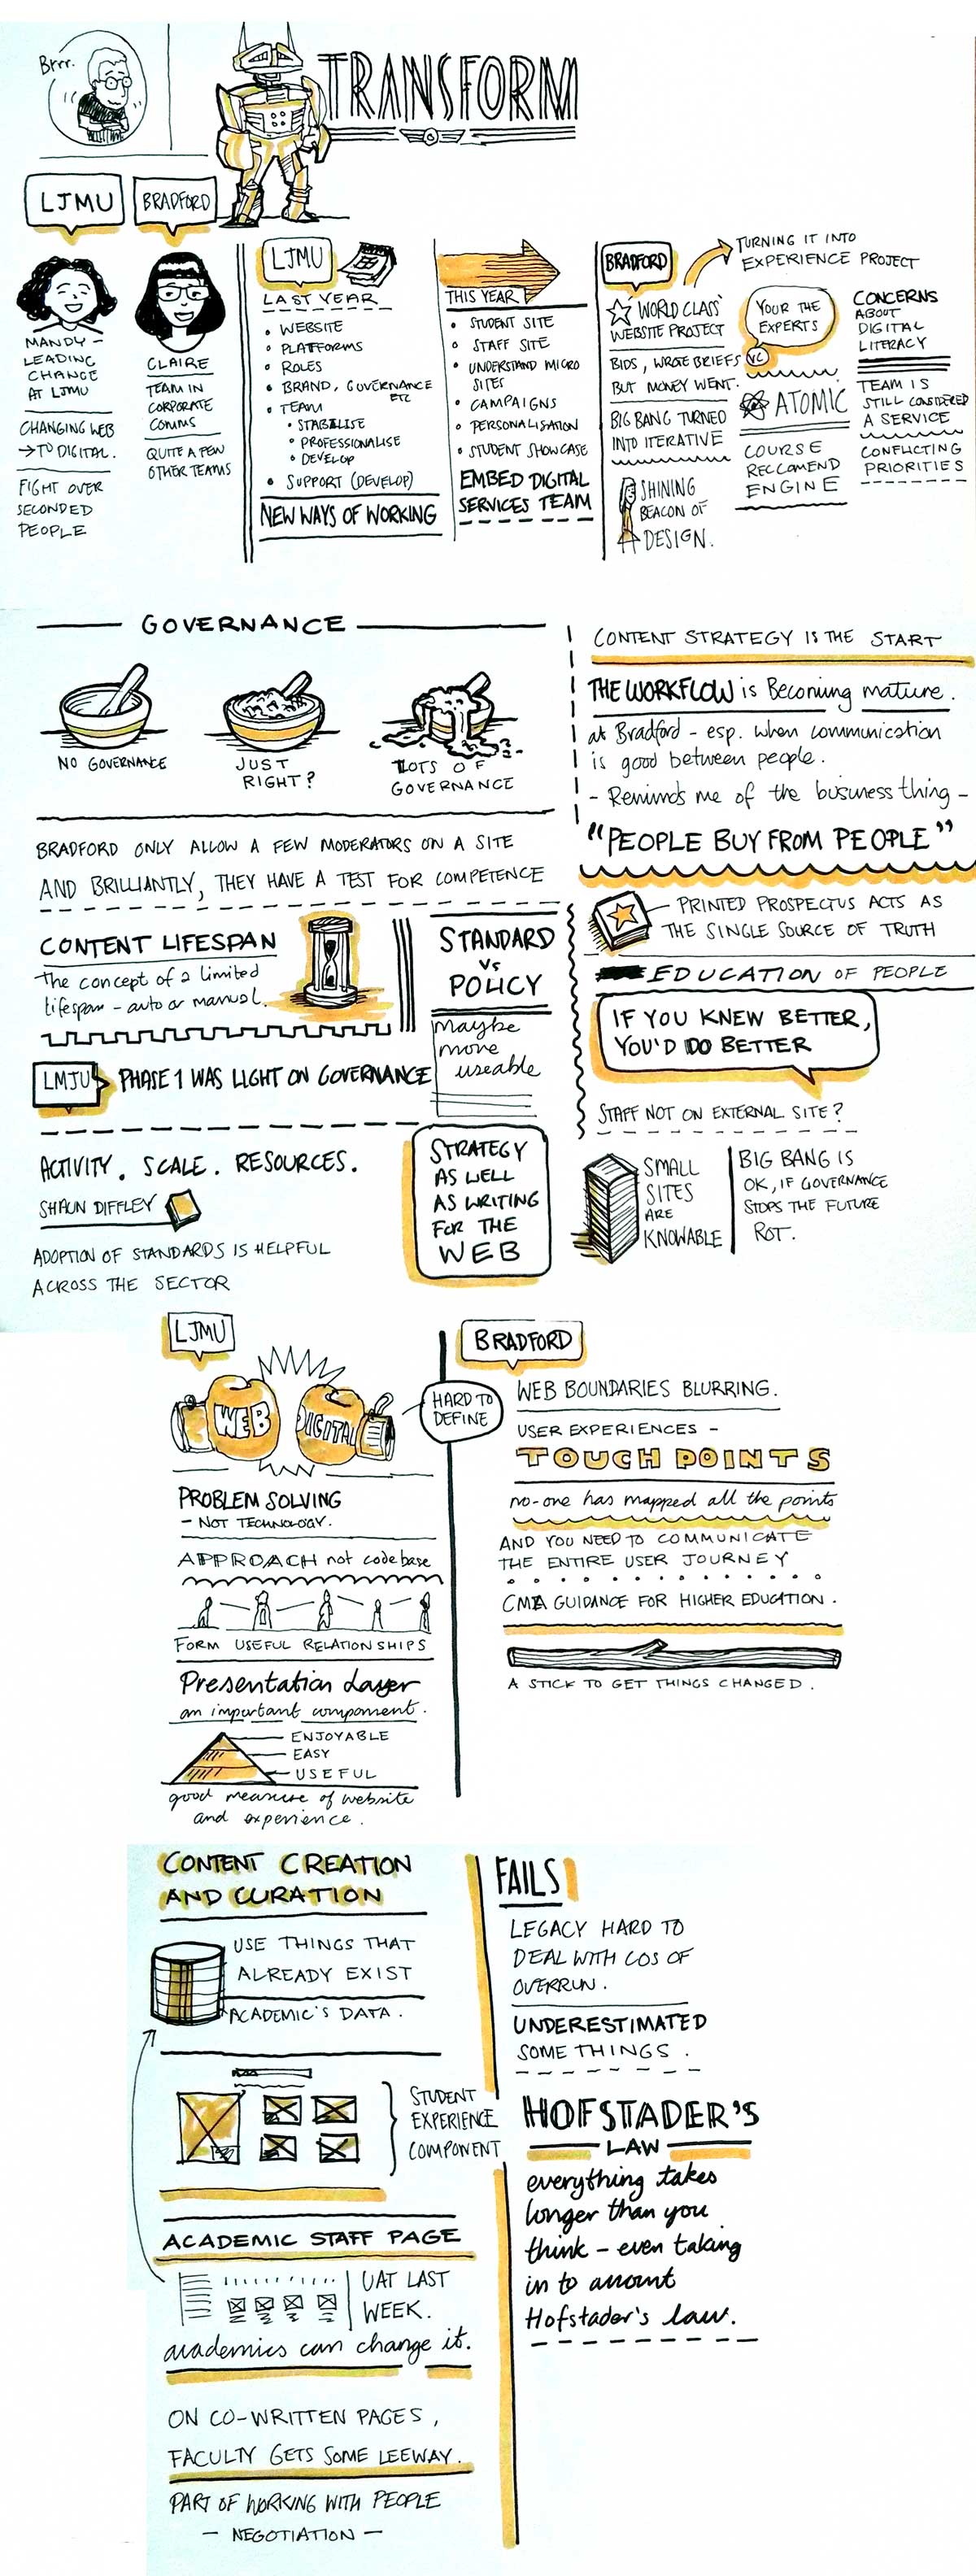 Brrr.
TRANSFORM
LJMU
BRADFORD
MANDY -
LEADING
CHANGE
AT LJMU
CHANGING WEB
→ TO DIGITAL.
FIGHT OVER
SECONDED
PEOPLE
CLAIRE
TEAM IN
CORPORATE
COMMS
QUITE A FEW
OTHER TEAMS
LJMU
LAST YEAR
• WEBSITE
• PLATFORMS
• ROLES
• BRAND, GOVERNANCE
ETC
• TEAM
• STABILISE
• PROFESSIONALISE
• DEVELOP
• SUPPORT (DEVELOP)
NEW WAYS OF WORKING
THIS YEAR
• STUDENT SITE
• STAFF SITE
• UNDERSTAND MICRO
SITES
• CAMPAIGNS
• PERSONALISATION
• STUDENT SHOWCASE
EMBED DIGITAL
SERVICES TEAM
BRADFORD
TURNING IT INTO
EXPERIENCE PROJECT
WORLD CLASS
WEBSITE PROJECT
BIDS, WROTE BRIEFS
BUT MONEY WENT.
BIG BANG TURNED
INTO ITERATIVE
SHINING
BEACON OF
DESIGN.
YOUR THE
EXPERTS
VC
ATOMIC
COURSE
RECCOMEND
ENGINE
CONCERNS
ABOUT
DIGITAL
LITERACY
TEAM IS
STILL CONSIDERED
A SERVICE
CONFLICTING
PRIORITIES
GOVERNANCE
NO GOVERNANCE
JUST
RIGHT?
LOTS OF
GOVERNANCE
BRADFORD ONLY ALLOW A FEW MODERATORS ON A SITE
AND BRILLIANTLY, THEY HAVE A TEST FOR COMPETENCE
CONTENT LIFESPAN
The concept of a limited
lifespan - auto or manual.
STANDARD
Vs
POLICY
Maybe
more
useable
LMJU
PHASE 1 WAS LIGHT ON GOVERNANCE
ACTIVITY. SCALE. RESOURCES.
SHAUN DIFFLEY
ADOPTION OF STANDARDS IS HELPFUL
ACROSS THE SECTOR
STRATEGY
AS WELL
AS WRITING
FOR THE
WEB
CONTENT STRATEGY IS THE START
THE WORKFLOW is Becoming mature.
at Bradford - esp. when communication
is good between people.
- Reminds me of the business thing -
"PEOPLE BUY FROM PEOPLE"
PRINTED PROSPECTUS ACTS AS
THE SINGLE SOURCE OF TRUTH
EDUCATION OF PEOPLE
IF YOU KNEW BETTER,
YOU'D DO BETTER
STAFF NOT ON EXTERNAL SITE?
SMALL
SITES
ARE
KNOWABLE
BIG BANG IS
OK, IF GOVERNANCE
STOPS THE FUTURE
ROT.
LJMU
WEB
DIGITAL
HARD TO
DEFINE
PROBLEM SOLVING
- NOT TECHNOLOGY.
APPROACH not codebase
FORM USEFUL RELATIONSHIPS
Presentation Layer
an important component.
ENJOYABLE
EASY
USEFUL
good measure of website
and experience.
BRADFORD
WEB BOUNDARIES BLURRING.
USER EXPERIENCES -
TOUCH POINTS
no-one has mapped all the points
AND YOU NEED TO COMMUNICATE
THE ENTIRE USER JOURNEY
CMA GUIDANCE FOR HIGHER EDUCATION.
A STICK TO GET THINGS CHANGED.
CONTENT CREATION
AND CURATION
USE THINGS THAT
ALREADY EXIST
ACADEMIC'S DATA.
STUDENT
EXPERIENCE
COMPONENT
ACADEMIC STAFF PAGE
UAT LAST
WEEK.
academics can change it.
ON CO-WRITTEN PAGES,
FACULTY GETS SOME LEEWAY.
PART OF WORKING WITH PEOPLE
- NEGOTIATION -
FAILS
LEGACY HARD TO
DEAL WITH COS OF
OVERRUN.
UNDERESTIMATED
SOME THINGS.
HOFSTADER'S
LAW
everything takes
longer than you
think - even taking
in to account
Hofstader's law.